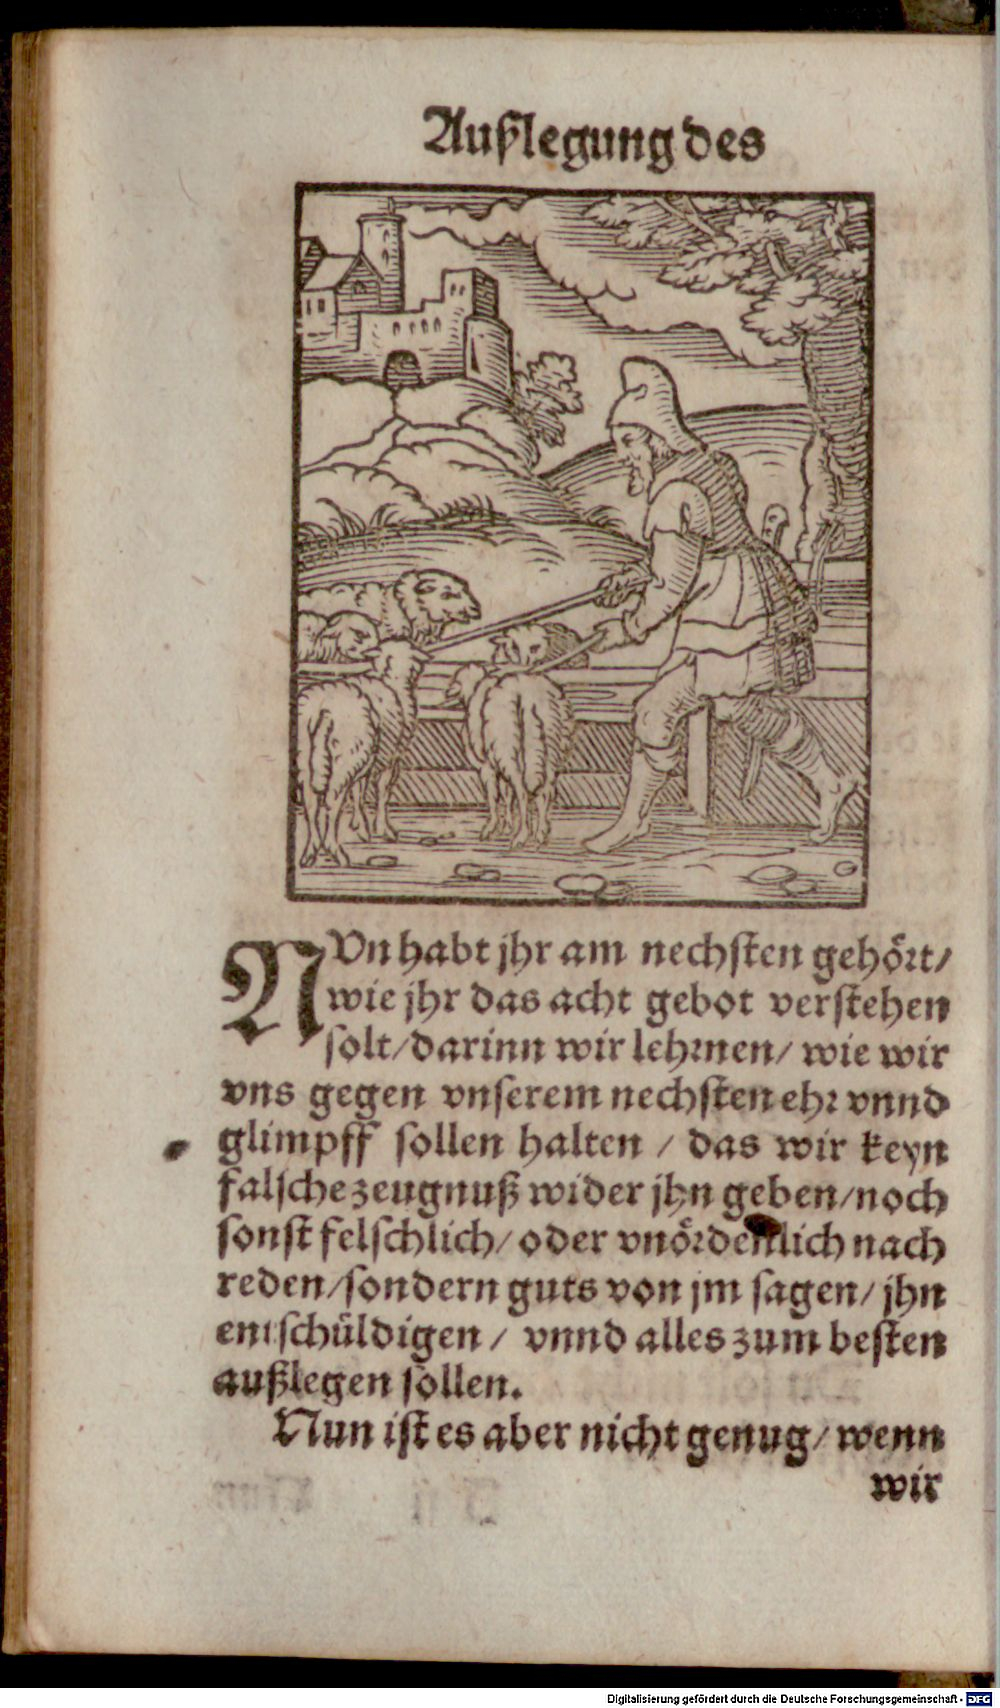 Außlegung des
NVn habt jhr am nechsten gehört/
wie jhr das acht gebot verstehen
solt/darinn wir lehrnen/ wie wir
vns gegen vnserem nechsten ehr vnnd
glimpff sollen halten / das wir keyn
falsche zeugnuß wider jhn geben/noch
sonst felschlich/ oder vnördenlich nach
reden/sondern guts von jm sagen/ jhn
entschüldigen / vnnd alles zum besten
außlegen sollen.
Nun ist es aber nicht genug/ wenn
wir
Digitalisierung gefördert durch die Deutsche Forschungsgemeinschaft - DFG